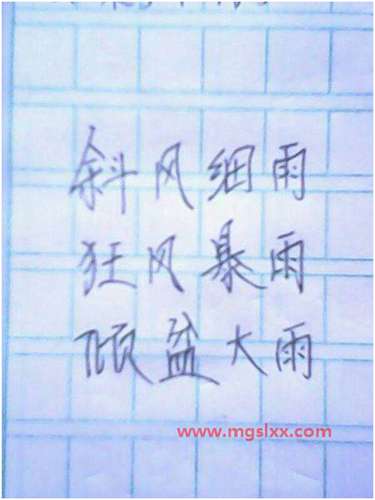 斜风细雨
狂风暴雨
倾盆大雨
www.mgslxx.com